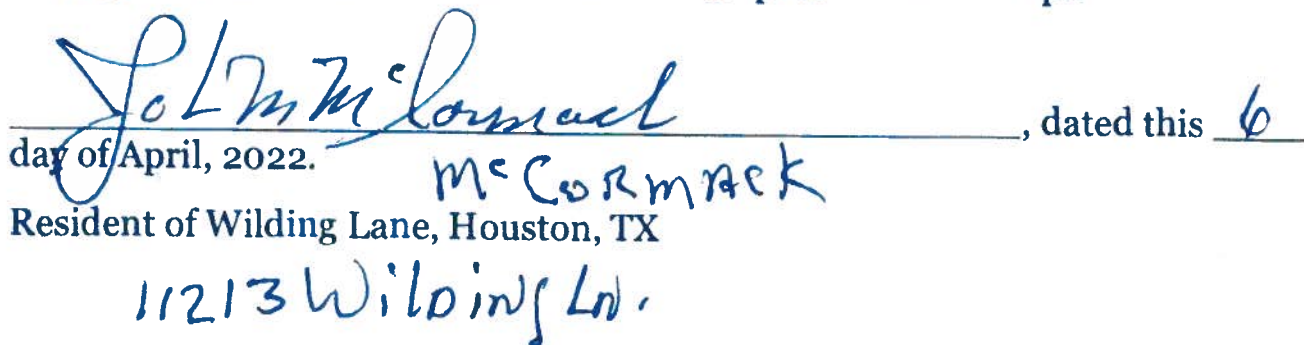 John M McCormack, dated this 6
day of April, 2022.
McCORMACK
Resident of Wilding Lane, Houston, TX
11213 Wilding Ln.